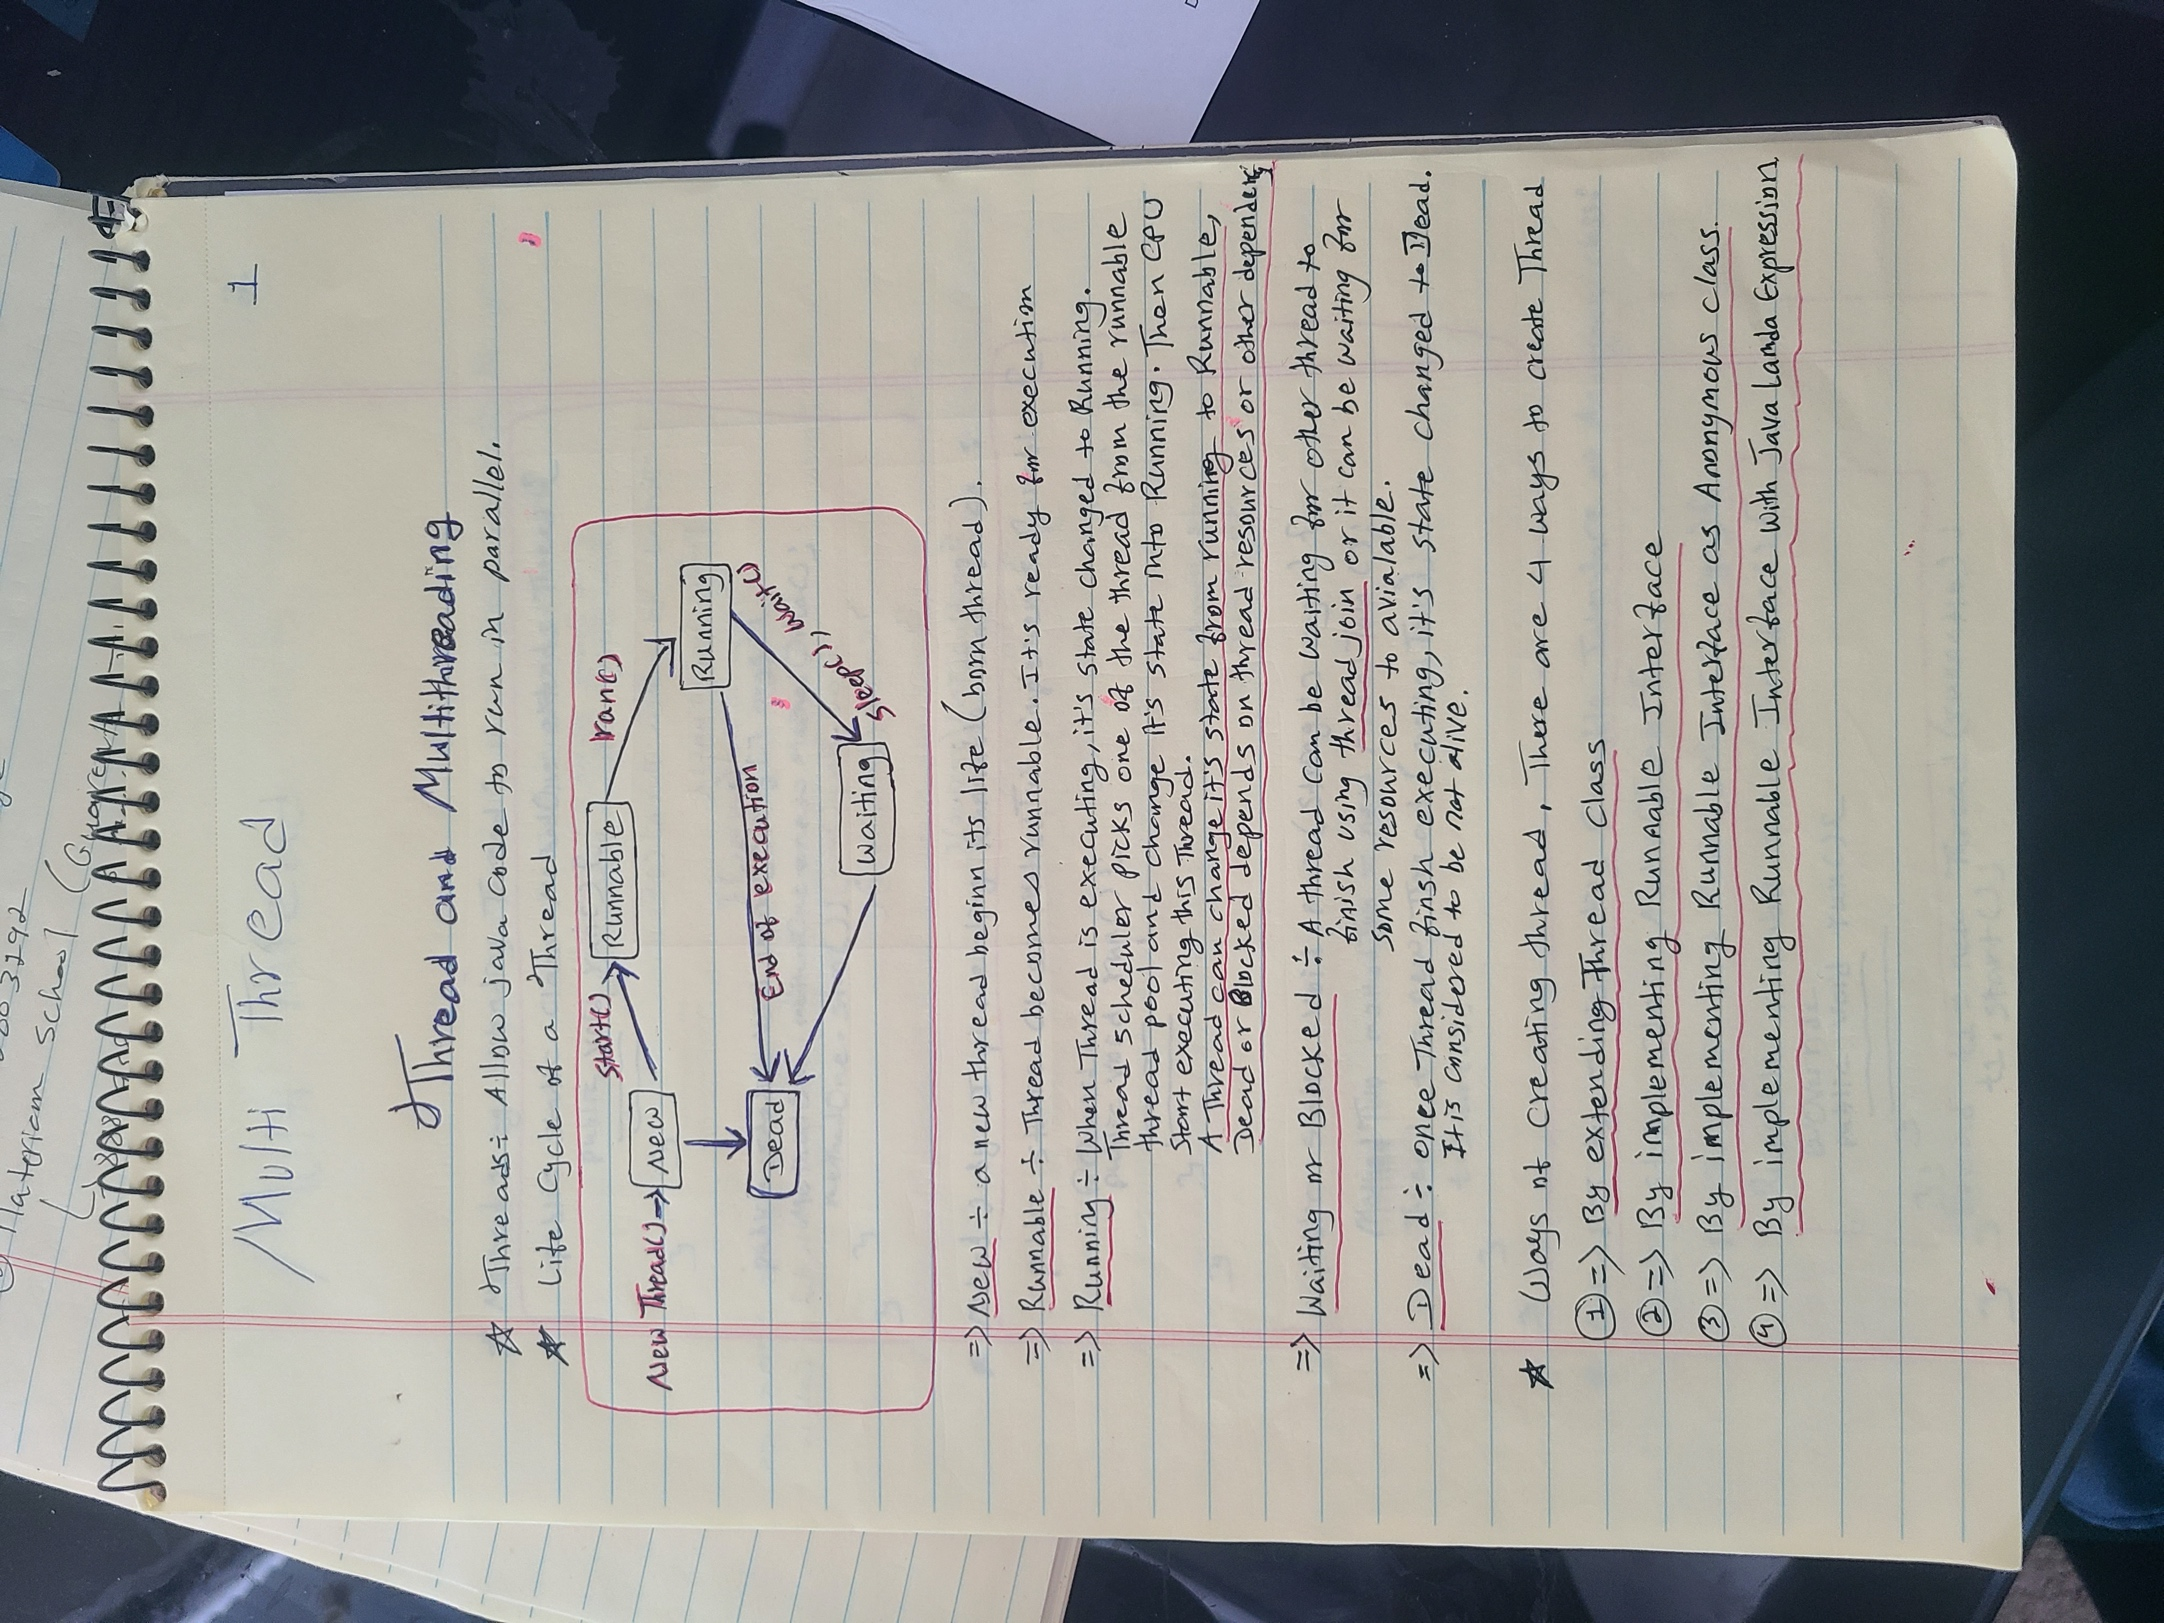 Multi Thread
1
Thread and Multithreading
* Threads÷ Allow java code to run in parallel.
* Life cycle of a Thread
New Thread() → New
Start()
Runnable
ran()
Running
Dead
End of execution
Sleep(), wait()
Waiting
=> New ÷ a new thread beginn its life (born thread).
=> Runnable ÷ Thread becomes runnable. It's ready for execution
=> Running ÷ When Thread is executing, it's state changed to Running.
Thread scheduler picks one of the thread from the runnable
thread pool and change It's state into Running. Then CPU
Start executing this thread.
A Thread can change it's state from running to Runnable,
Dead or Blocked depends on thread resources or other dependency
=> Waiting or Blocked ÷ A thread can be waiting for other thread to
finish using thread join or it can be waiting for
some resources to avialable.
=> Dead ÷ once Thread finsh executing, it's state changed to Dead.
It is considered to be not alive.
* Ways of Creating thread, There are 4 ways to create Thread
① => By extending Thread class
② => By implementing Runnable Interface
③ => By implementing Runnable Interface as Anonymous class.
④ => By implementing Runnable Interface with Java Lamda Expression
003292
Materiam School